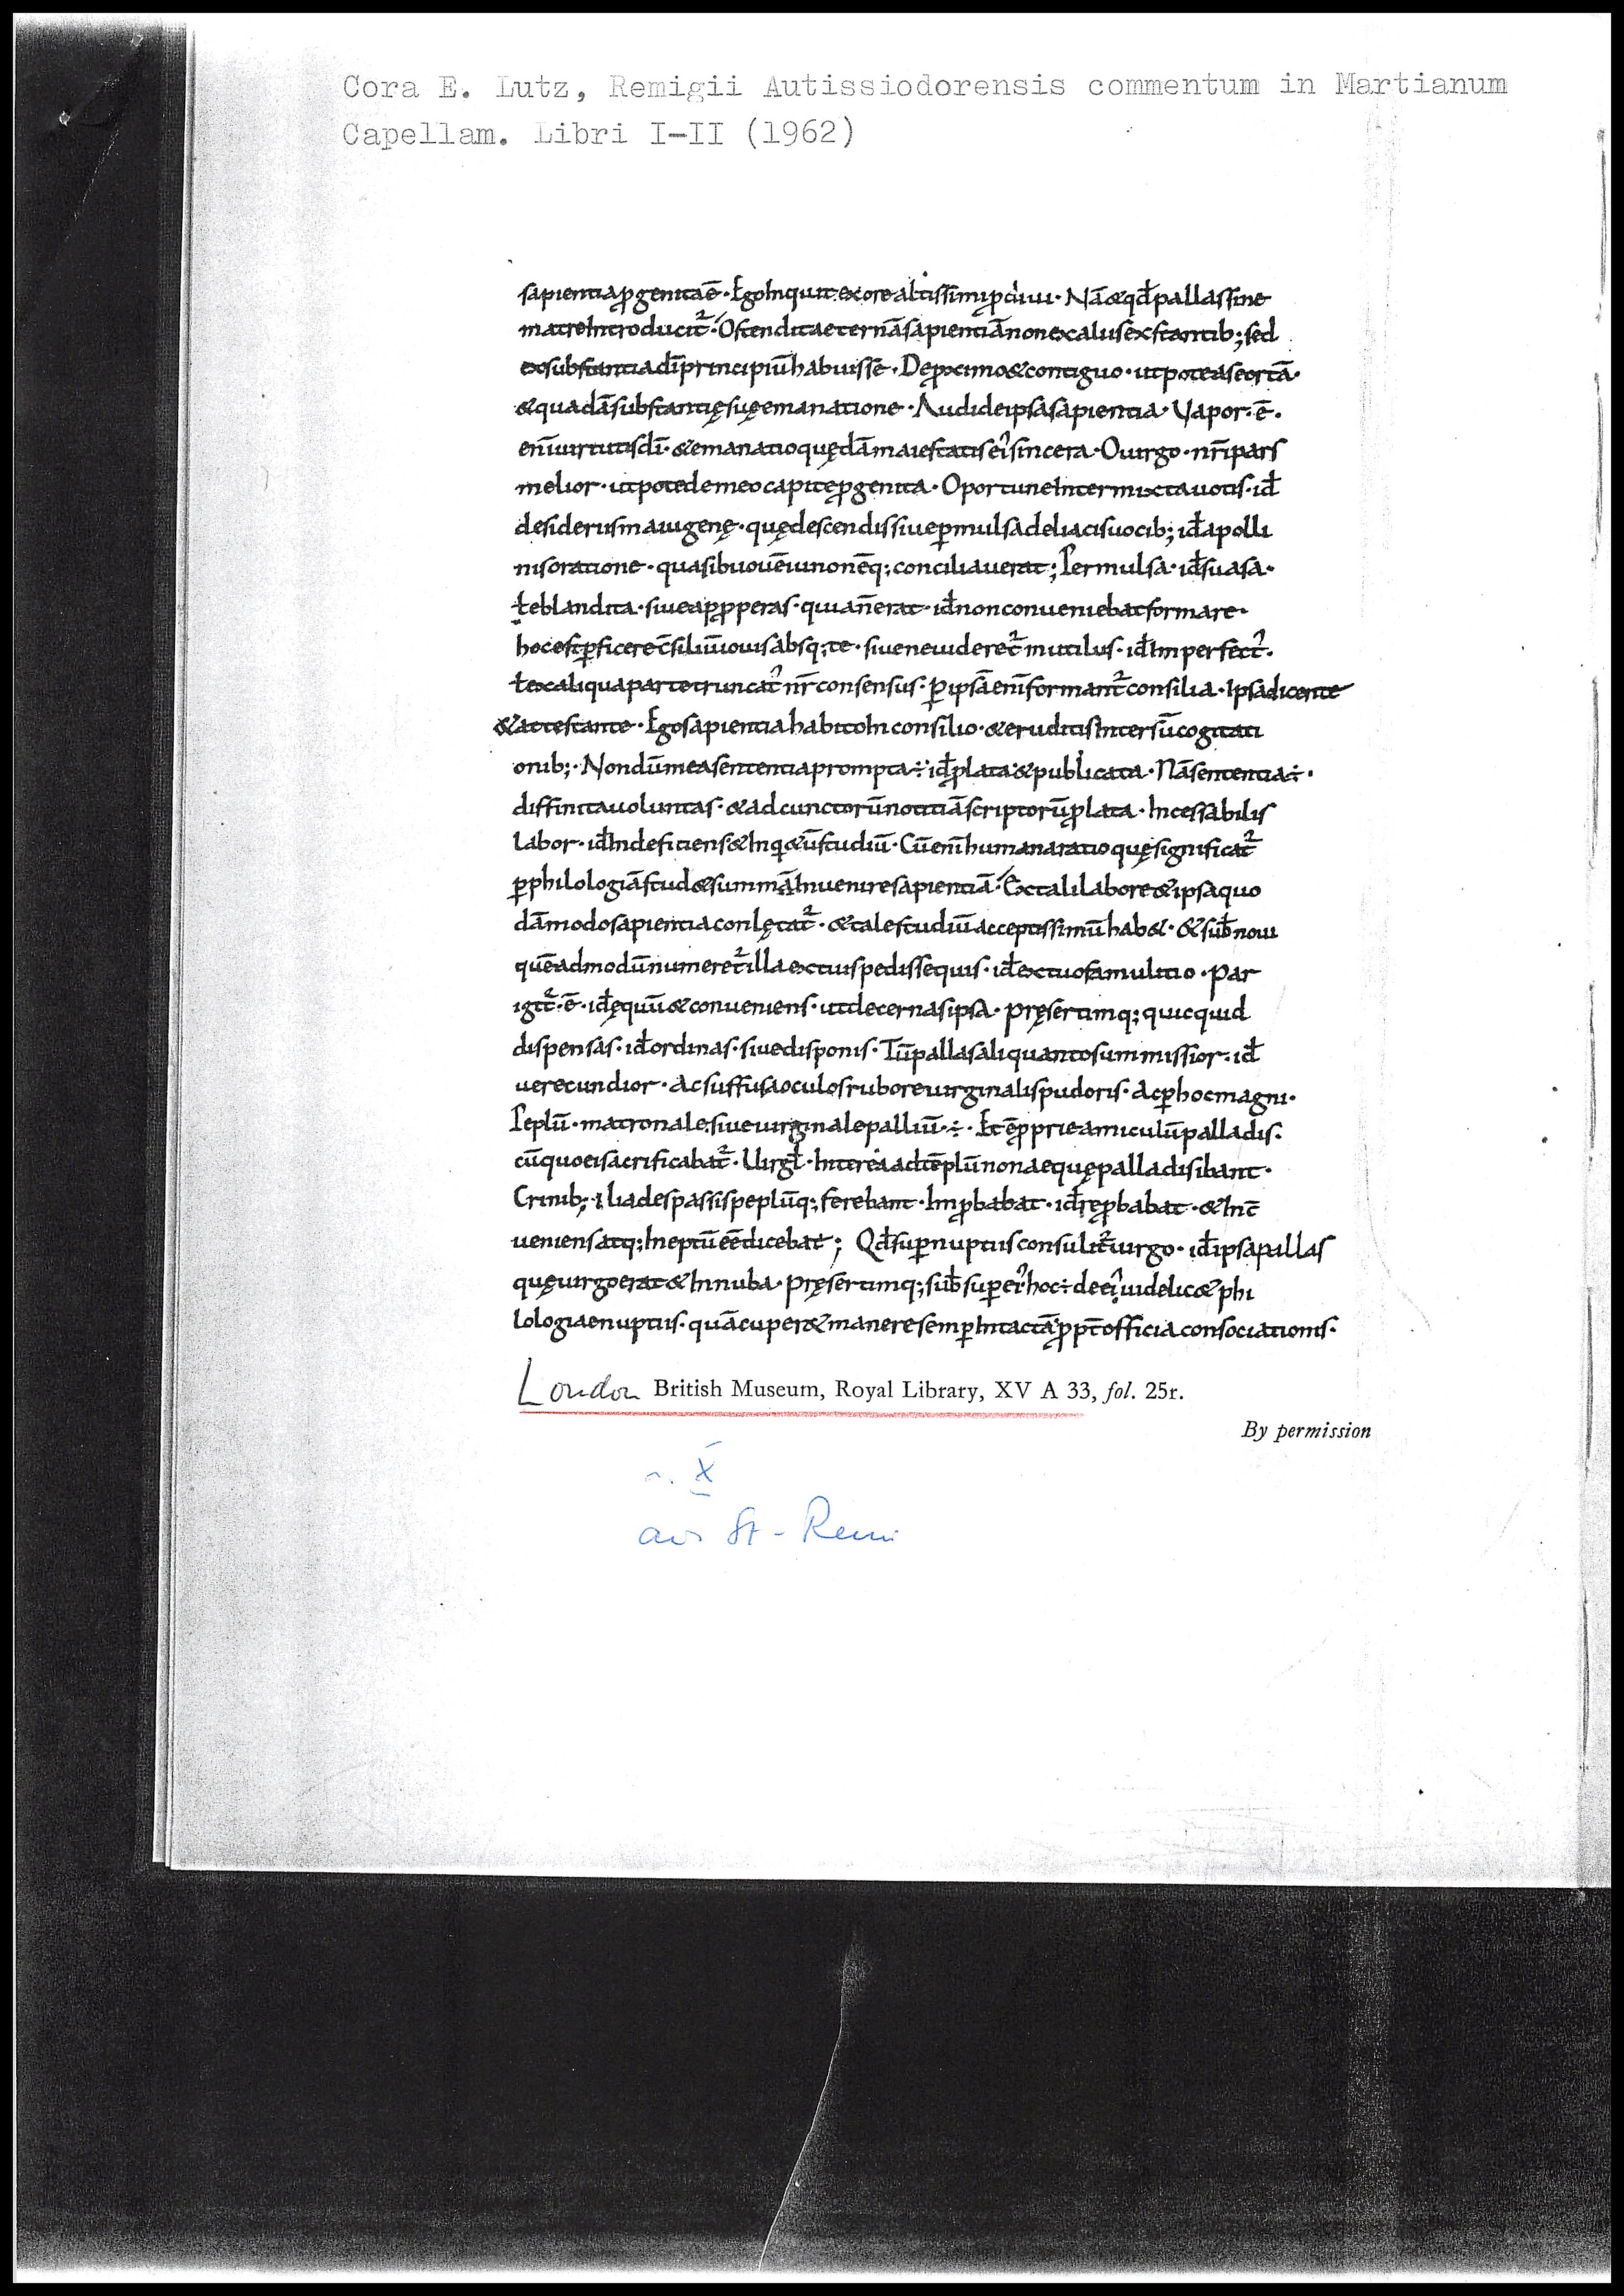 Cora E. Lutz, Remigii Autissiodorensis commentum in Martianum
Capellam. Libri I-II (1962)
sapientia ꝓgenita ē · Ego inquit ex ore altissimi ꝓdiui · Nā & qđ pallas sine
matre introducit᷑ · Ostendit aeternā sapientiā non ex aliis exstantib; sed
ex substantia dī principiū habuisse · De ꝓximo & contiguo · utpote a se ortā ·
& quadā substantię suę emanatione · Audi de ipsa sapientia · Vapor · ē ·
enī uirtutis dī · & emanatio quędā maiestatis ei᾽ sincera · O uirgo · nr̄i pars
melior · utpote de meo capite ꝓgenita · Oportune intermixta uotis · iđ
desideriis maiugenę · quę descendis siue ꝑmulsa deliacis uocib; iđ apolli
nis oratione · quasi buouē iunonēq; conciliauerat; Permulsa · iđ suasa ·
ł eblandita · siue a ꝓpperas · quia n̄ erat · iđ non conueniebat formare ·
hoc est ꝑficere c̄siliū iouis absq; te · siue ne uideret᷑ mutilus · iđ imperfect᾽ ·
ł ex aliqua parte truncat᾽ nr̄ consensus · ꝑ ipsā enī formant᷑ consilia · Ipsa dicente
& attestante · Ego sapientia habito in consilio · & eruditis intersū cogitati
onib; · Nondū mea sententia prompta ÷ iđ ꝓlata & publicata · Nā sententia ÷ ·
diffinita uoluntas · & ad cunctorū notitiā scriptorū ꝓlata · Incessabilis
labor · iđ indeficiens & inqi&ū studiū · Cū enī humana ratio quę significat᷑
ꝑ philologiā stud& summā inuenire sapientiā · Ex tali labore & ipsa quo
dā modo sapientia conlętat᷑ · & tale studiū acceptissimū hab& · & sub noui
quē admodū numeret᷑ illa ex tuis pedissequis · iđ ex tuo famulitio · Par
igit᷑ · ē · iđ ęquū & conueniens · ut decernas ipsa · Pręsertimq; quicquid
dispensas · iđ ordinas · siue disponis · Tū pallas aliquanto summissior · iđ
uerecundior · Ac suffusa oculos rubore uirginalis pudoris · Ac ꝑ hoc magni ·
Peplū · matronale siue uirginale palliū · ÷ · Et ē ꝓprie amiculū palladis ·
cū quo ei sacrificabat᷑ · Uirgł · Interea ad tēplū non aequę palladis ibant ·
Crinib; iliades passis peplūq; ferebant · Imꝓbabat · iđ reꝓbabat · & inc̄
ueniens atq; ineptū eē dicebat; Qđ suꝑ nuptiis consulit᷑ uirgo · iđ ipsa pallas
quę uirgo erat & innuba · Pręsertimq; sub super ei᾽ hoc ÷ de ei᾽ uidelic& phi
lologiae nuptiis · quā cuper& manere semꝑ intactā ꝓpt̄ officia consociationis ·
London British Museum, Royal Library, XV A 33, fol. 25r.
By permission
X
aus St-Remi